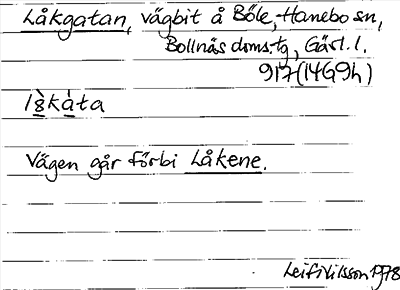 Låkgatan, vägbit å Böle, Hanebo sn,
Bollnäs doms.tg, Gävl. l.
917 (14G9h)
Vägen går förbi Låkene.
Leif Nilsson 1978